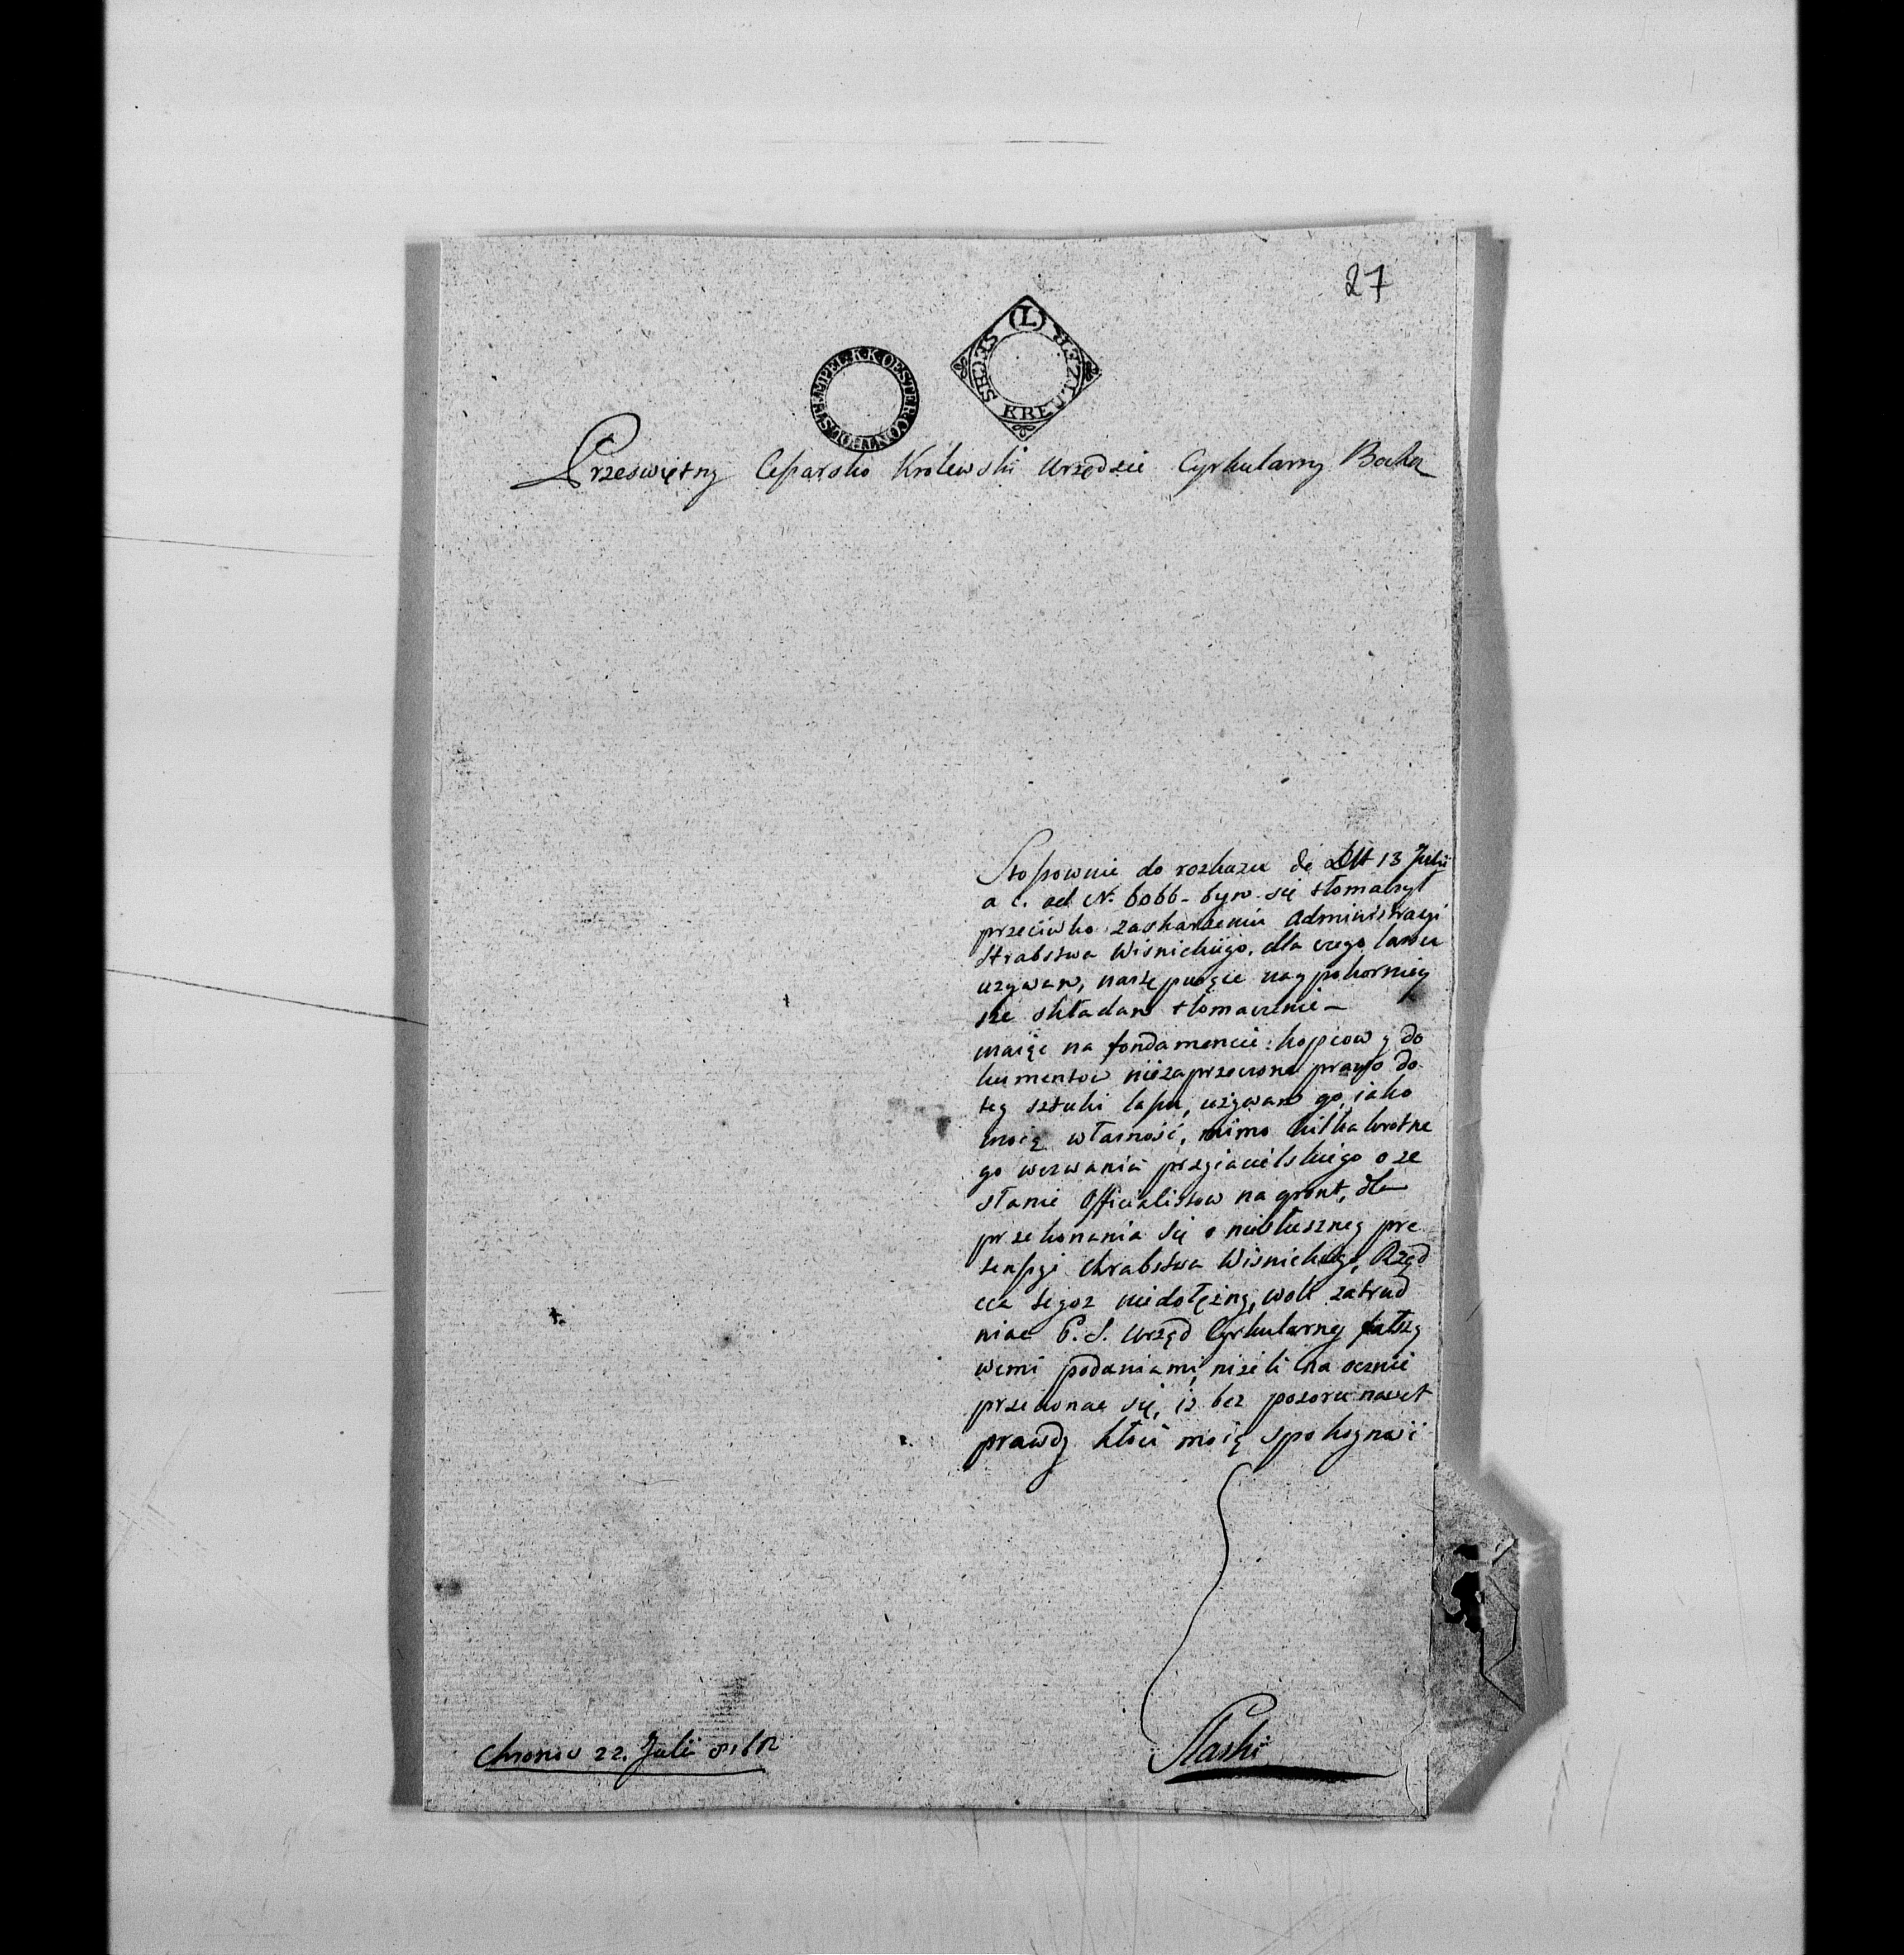 27
STEMPEL K K OESTER CONTROLS
(L) SECHS KREUTZER
Przeswiętny Cesarsko Krolewski Urzędzie Cyrkularny
Stosownie do rozkazu de 13 Julii
a c. ad N. 6066 bym się tłomaczył
przeciwko zaskarzeniu Administracyi
Hrabstwa Wisnickiego, dla czego lassu
uzywam, następuiące naypokorniey
sze składam tłomaczenie –
maiąc na fondamencie kopcow y do
kumentow niezaprzeczone prawo do
tey sztuki lasu, uzywam go, iako
moią własność, mimo kilkakrotne
go wezwania przyiacielskiego o ze
słanie Officialistow na gront, dla
przekonania się o niesłuszney pre
tensyi Hrabstwa Wisnickiego, Rząd
cca tegoz niedołęzny, woli zatrud
niac P. S. Urząd Cyrkularny fałszy
wemi podaniami, nizeli na ocznie
przekonac się, iz bez pozoru nawet
prawdy kłoci moią spokoynosć
Chronow 22. Julii
Slaski